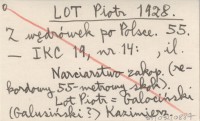 LOT Piotr 1928.
Z wędrówek po Polsce. 55.
— IKC 19, nr 14: il.
Narciarstwo zakop. (re-
kordowy 55-metrowy skok).
Lot Piotr = Galociński
(Galusiński?) Kazimierz.